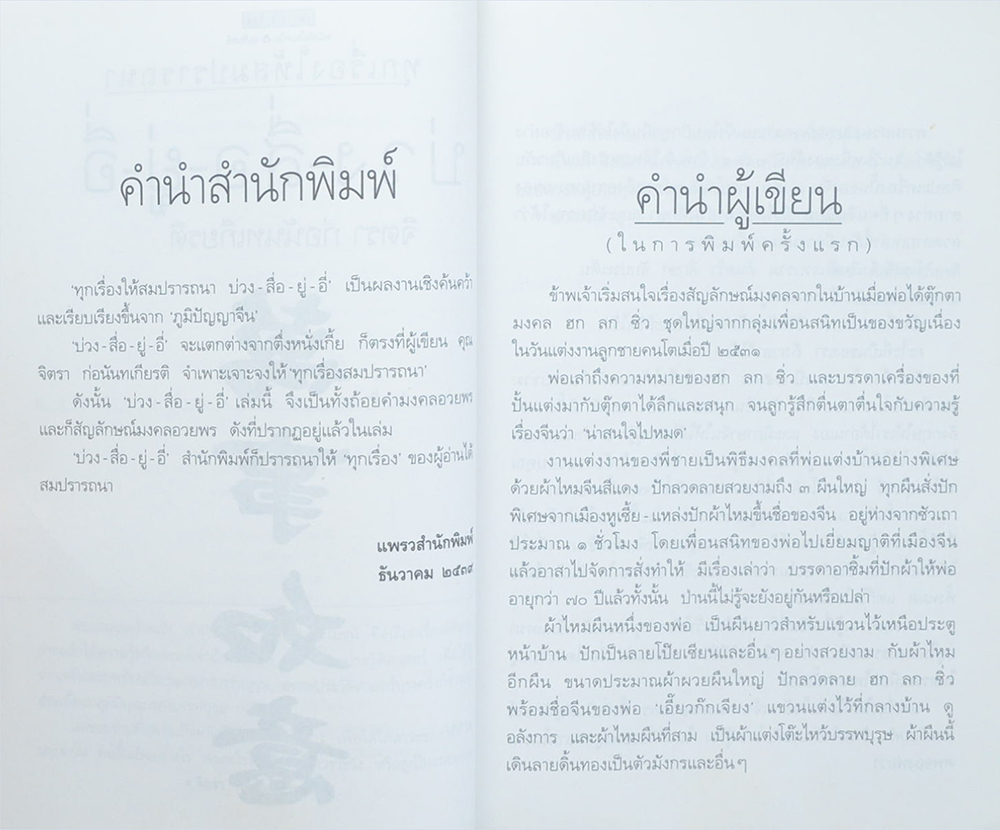 คำนำสำนักพิมพ์
'ทุกเรื่องให้สมปรารถนา บ่วง-สื่อ-ยู่-อี่' เป็นผลงานเชิงค้นคว้า
และเรียบเรียงขึ้นจาก 'ภูมิปัญญาจีน'
'บ่วง-สื่อ-ยู่-อี่' จะแตกต่างจากตึ่งหนั่งเกี้ย ก็ตรงที่ผู้เขียน คุณ
จิตรา ก่อนันทเกียรติ จำเพาะเจาะจงให้ 'ทุกเรื่องสมปรารถนา'
ดังนั้น 'บ่วง-สื่อ-ยู่-อี่' เล่มนี้ จึงเป็นทั้งถ้อยคำมงคลอวยพร
และก็สัญลักษณ์มงคลอวยพร ดังที่ปรากฏอยู่แล้วในเล่ม
'บ่วง-สื่อ-ยู่-อี่' สำนักพิมพ์ก็ปรารถนาให้ 'ทุกเรื่อง' ของผู้อ่านได้
สมปรารถนา
แพรวสำนักพิมพ์
ธันวาคม ๒๕๓๙
คำนำผู้เขียน
(ในการพิมพ์ครั้งแรก)
ข้าพเจ้าเริ่มสนใจเรื่องสัญลักษณ์มงคลจากในบ้านเมื่อพ่อได้ตุ๊กตา
มงคล ฮก ลก ซิ่ว ชุดใหญ่จากกลุ่มเพื่อนสนิทเป็นของขวัญเนื่อง
ในวันแต่งงานลูกชายคนโตเมื่อปี ๒๕๓๑
พ่อเล่าถึงความหมายของฮก ลก ซิ่ว และบรรดาเครื่องของที่
ปั้นแต่งมากับตุ๊กตาได้ลึกและสนุก จนลูกรู้สึกตื่นตาตื่นใจกับความรู้
เรื่องจีนว่า 'น่าสนใจไปหมด'
งานแต่งงานของพี่ชายเป็นพิธีมงคลที่พ่อแต่งบ้านอย่างพิเศษ
ด้วยผ้าไหมจีนสีแดง ปักลวดลายสวยงามถึง ๓ ผืนใหญ่ ทุกผืนสั่งปัก
พิเศษจากเมืองหูเซี้ย-แหล่งปักผ้าไหมขึ้นชื่อของจีน อยู่ห่างจากซัวเถา
ประมาณ ๑ ชั่วโมง โดยเพื่อนสนิทของพ่อไปเยี่ยมญาติที่เมืองจีน
แล้วอาสาไปจัดการสั่งทำให้ มีเรื่องเล่าว่า บรรดาอาซิ้มที่ปักผ้าให้พ่อ
อายุกว่า ๗๐ ปีแล้วทั้งนั้น ป่านนี้ไม่รู้จะยังอยู่กันหรือเปล่า
ผ้าไหมผืนหนึ่งของพ่อ เป็นผืนยาวสำหรับแขวนไว้เหนือประตู
หน้าบ้าน ปักเป็นลายโป๊ยเซียนและอื่นๆ อย่างสวยงาม กับผ้าไหม
อีกผืน ขนาดประมาณผ้าผวยผืนใหญ่ ปักลวดลาย ฮก ลก ซิ่ว
พร้อมชื่อจีนของพ่อ 'เอี๊ยวก๊กเจียง' แขวนแต่งไว้ที่กลางบ้าน ดู
อลังการ และผ้าไหมผืนที่สาม เป็นผ้าแต่งโต๊ะไหว้บรรพบุรุษ ผ้าผืนนี้
เดินลายดิ้นทองเป็นตัวมังกรและอื่นๆ